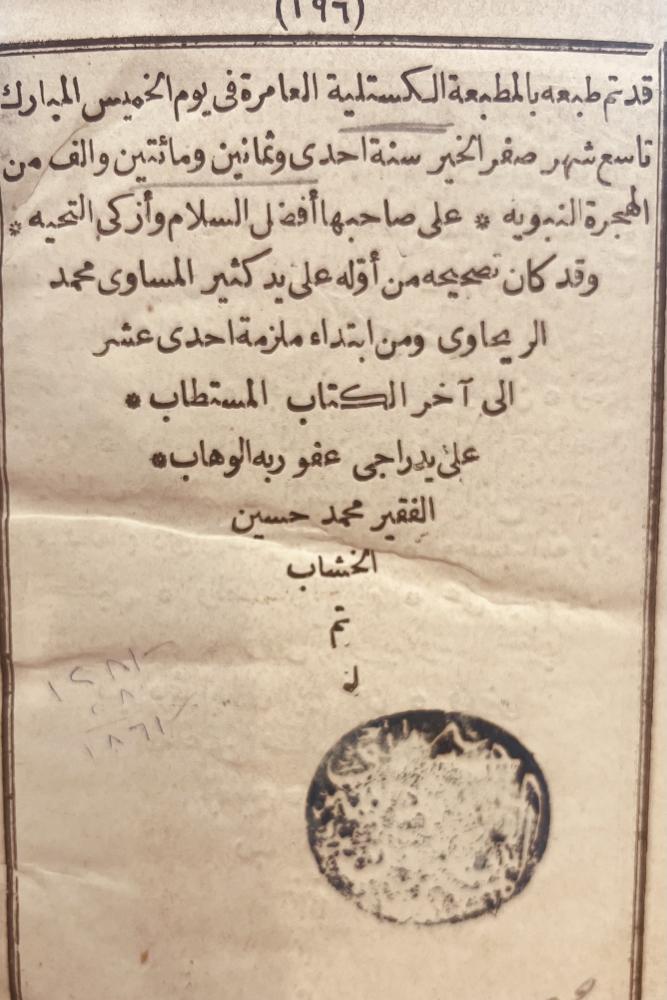 (١٩٦)
قد تم طبعه بالمطبعة الكستلية العامرة فى يوم الخميس المبارك
تاسع شهر صفر الخير سنة احدى وثمانين ومائتين والف من
الهجرة النبويه * على صاحبها أفضل السلام وأزكى التحيه *
وقد كان تصحيحه من أوّله على يد كثير المساوى محمد
الريحاوى ومن ابتداء ملزمة احدى عشر
الى آخر الكتاب المستطاب *
على يد راجى عفو ربه الوهاب *
الفقير محمد حسين
الخشاب
تم
١٢٨١
١٨٦١